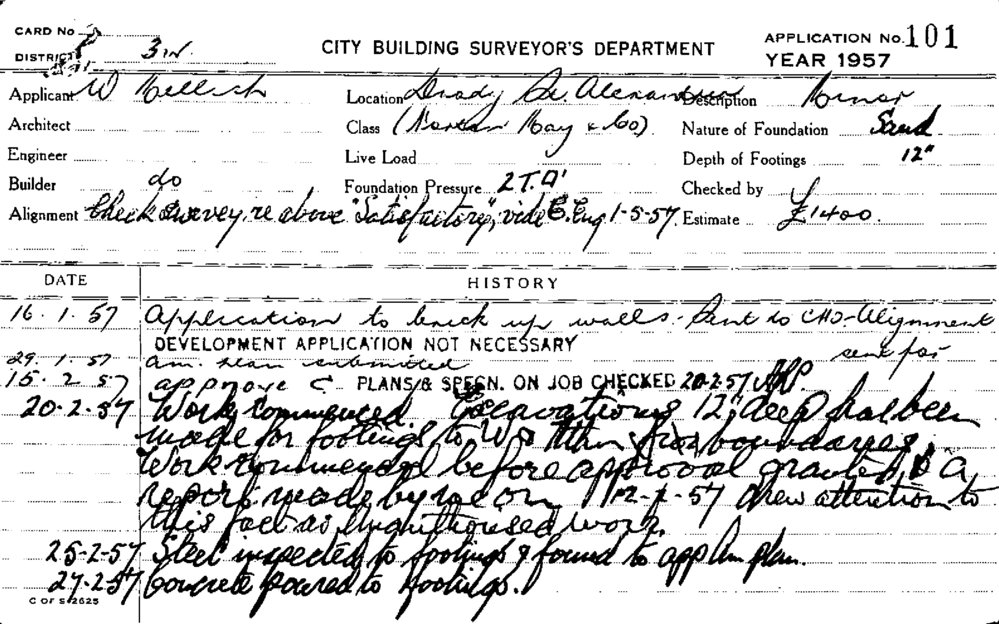 CARD No
DISTRICT 3W.
CITY BUILDING SURVEYOR'S DEPARTMENT
APPLICATION No. 101
YEAR 1957
Applicant W Location St. Alexandria Description Minor
Architect Class Nature of Foundation Sand
Engineer Live Load Depth of Footings 12"
Builder do Foundation Pressure 2 T. □' Checked by
Alignment Check survey re above "Satisfactory", vide C. Eng 1-5-57. Estimate £1400.
DATE HISTORY
16.1.57 Application to brick up walls - Sent to CHO - Alignment
DEVELOPMENT APPLICATION NOT NECESSARY sent for
29.1.57 am. plan submitted
15.2.57 approve C PLANS & SPECN. ON JOB CHECKED 20-2-57
20-2-57 Work commenced. Excavations 12" deep has been
made for footings to boundaries.
Work commenced before approval granted, & a
report made by me on 12-2-57 drew attention to
this fact as unauthorised work.
25-2-57 Steel inspected to footings & found to app Am plan.
27-2-57 Concrete poured to footings.
C OF S 2625